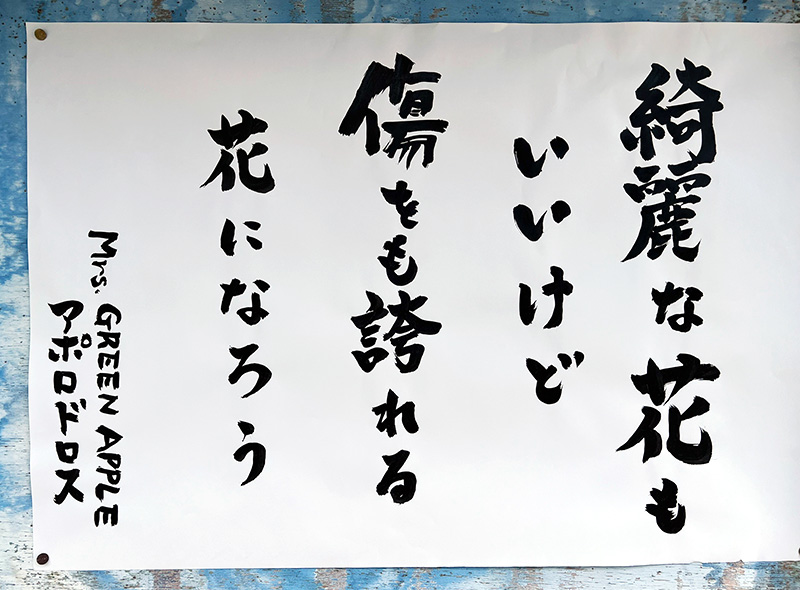 綺麗な花も
いいけど
傷をも誇れる
花になろう
Mrs. GREEN APPLE
アポロドロス